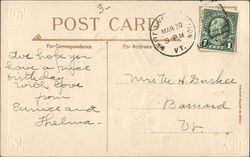 3-
POST CARD
For Correspondence
For Address
MAR 20
9-PM
VT.
1
1
I've hope you
have a nice
birthday
with love
from
Eunice and
Thelma.
Mrs M. H. Duskee
Barnard
Vt